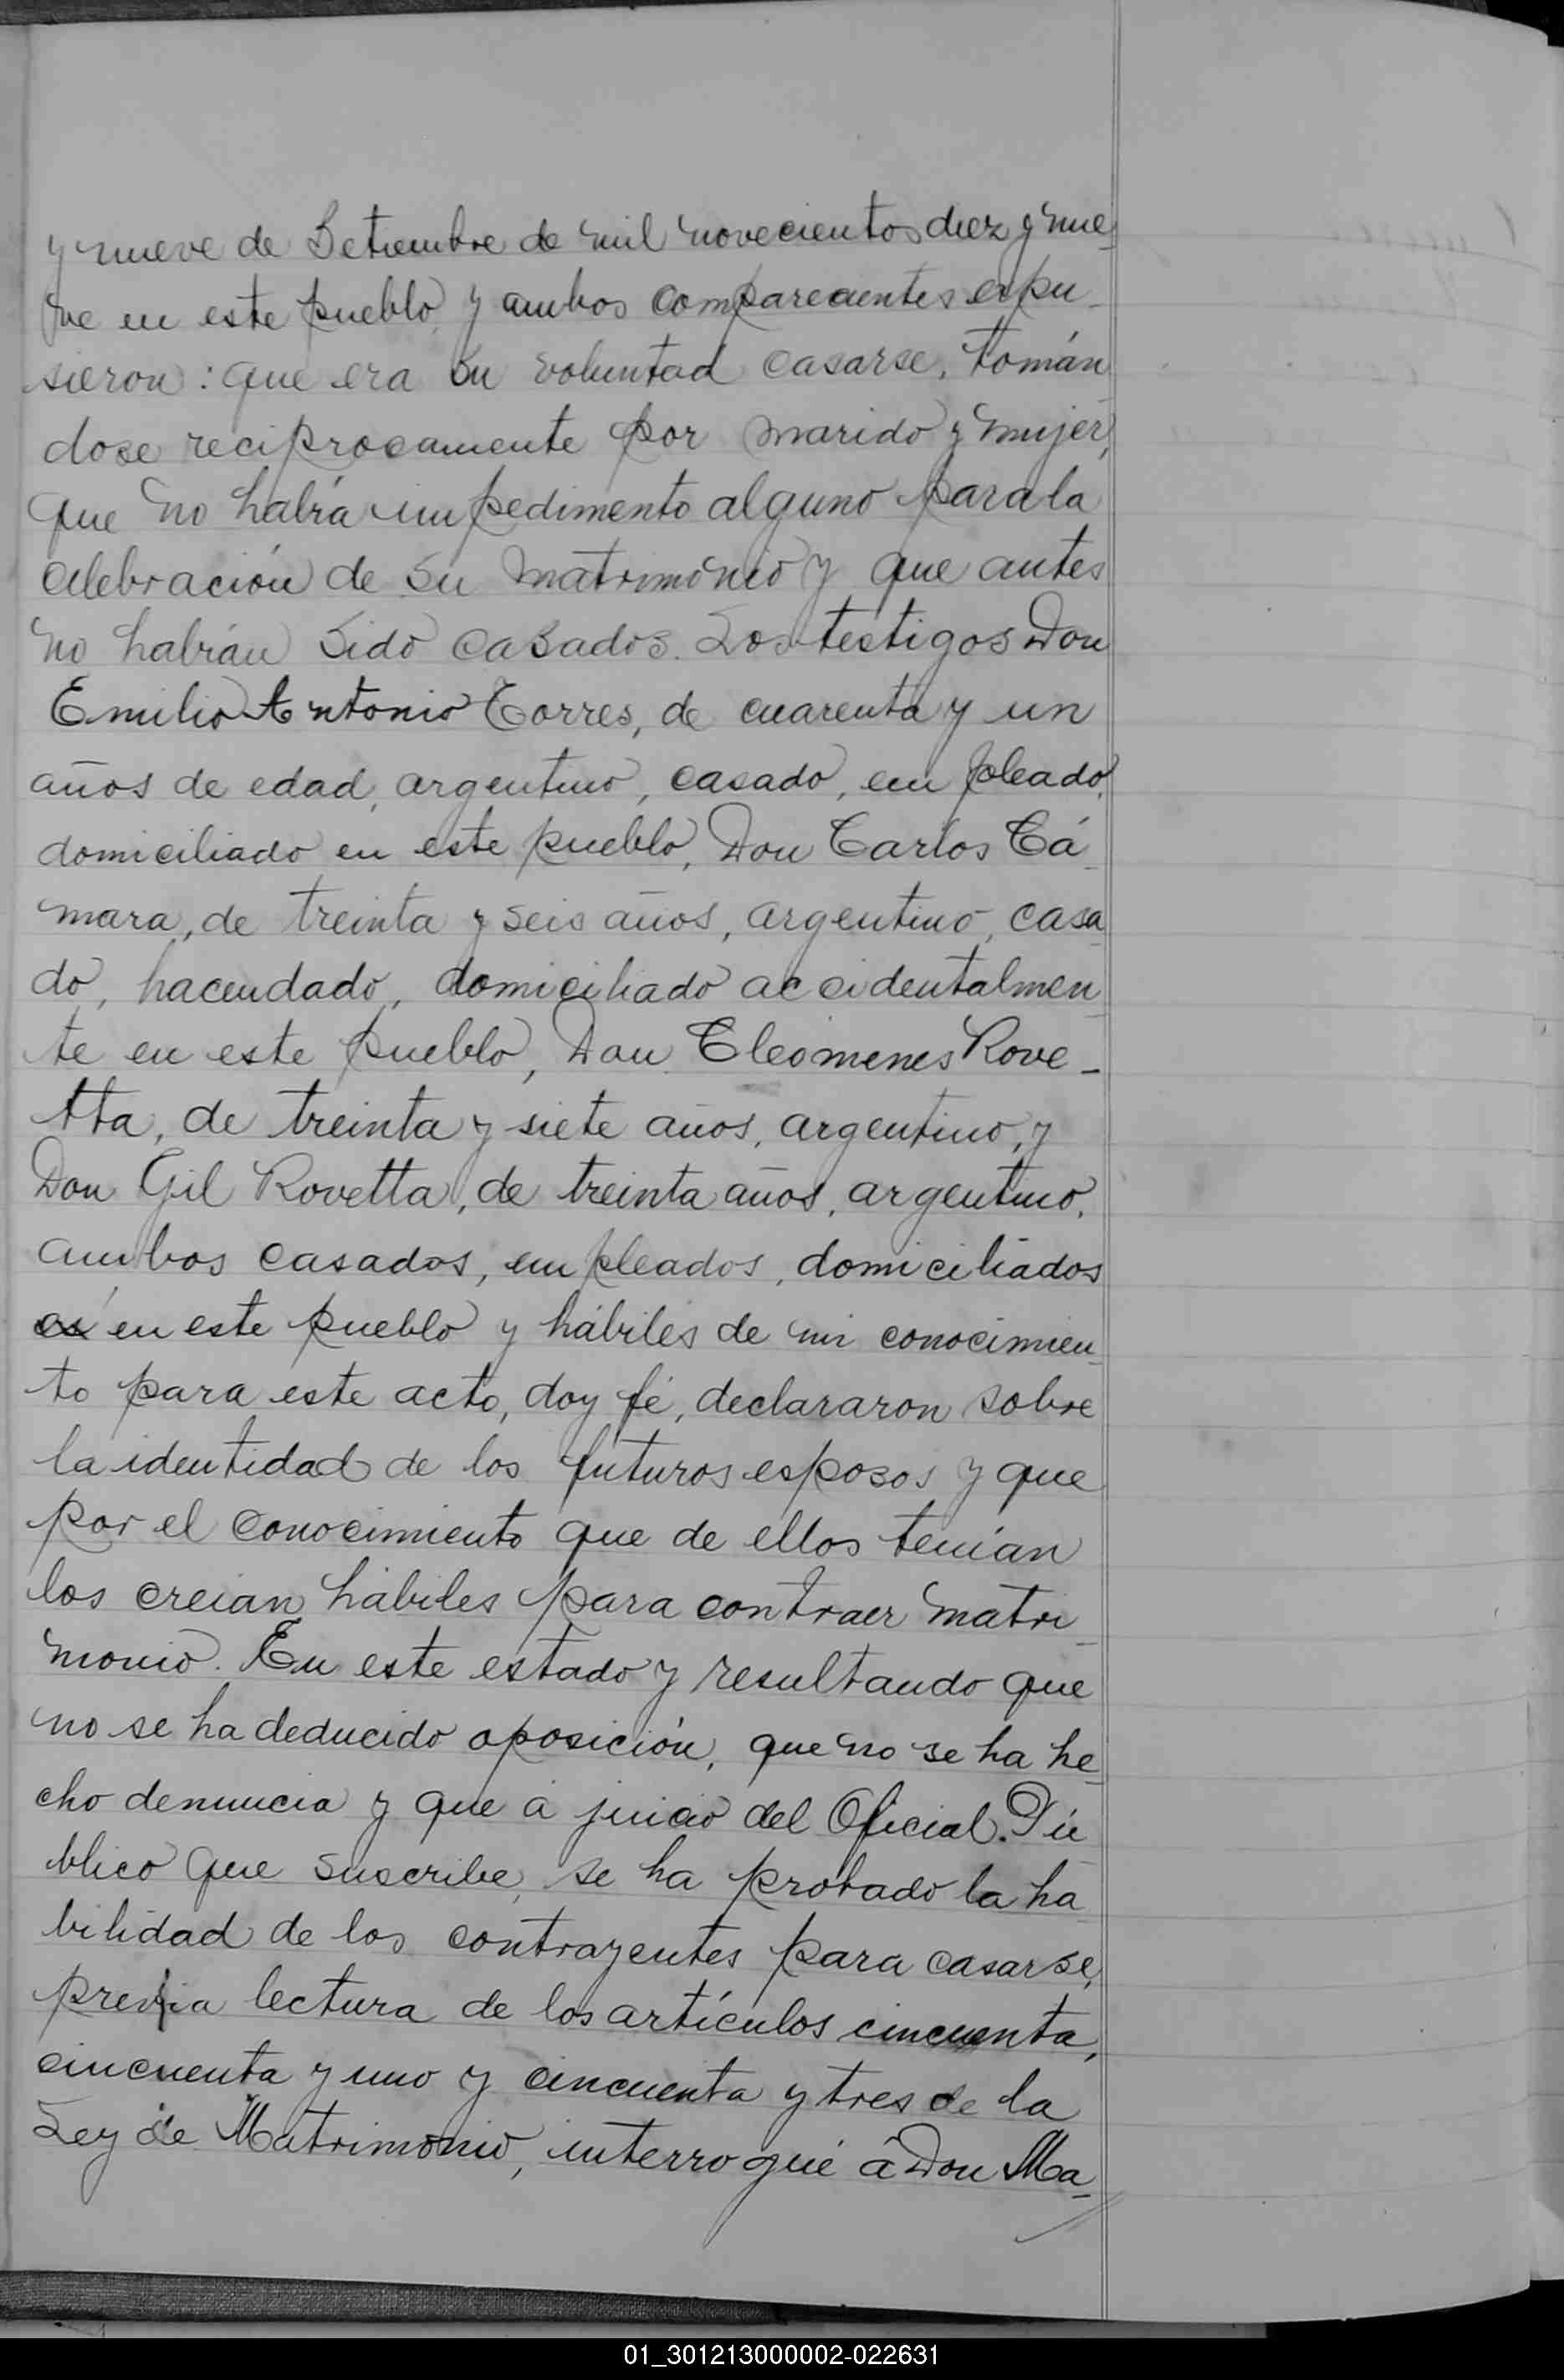 y nueve de Setiembre de mil novecientos diez y nue-
ve en este pueblo, y ambos comparecientes expu-
sieron: que era su voluntad casarse, tomán
dose reciprocamente por marido y mujer,
que no habia impedimento alguno para la
celebración de su matrimonio y que antes
no habian sido casados. Los testigos Don
Emilio Antonio Torres, de cuarenta y un
años de edad, argentino, casado, empleado,
domiciliado en este pueblo, Don Carlos Cá-
mara, de treinta y seis años, argentino, casa
do, hacendado, domiciliado accidentalmen
te en este pueblo, Don Cleomenes Rove-
tta, de treinta y siete años, argentino, y
Don Gil Rovetta, de treinta años, argentino,
ambos casados, empleados, domiciliados
en este pueblo y hábiles de mi conocimien-
to para este acto, doy fé, declararon sobre
la identidad de los futuros esposos y que
por el conocimiento que de ellos tenian
los creian hábiles para contraer matri-
monio. En este estado y resultando que
no se ha deducido oposición, que no se ha he-
cho denuncia y que á juicio del Oficial Pú
blico que suscribe, se ha probado la ha
bilidad de los contrayentes para casarse,
previa lectura de los artículos cincuenta,
cincuenta y uno y cincuenta y tres de la
Ley de Matrimonio, interrogué á Don Ma-
01_301213000002-022631